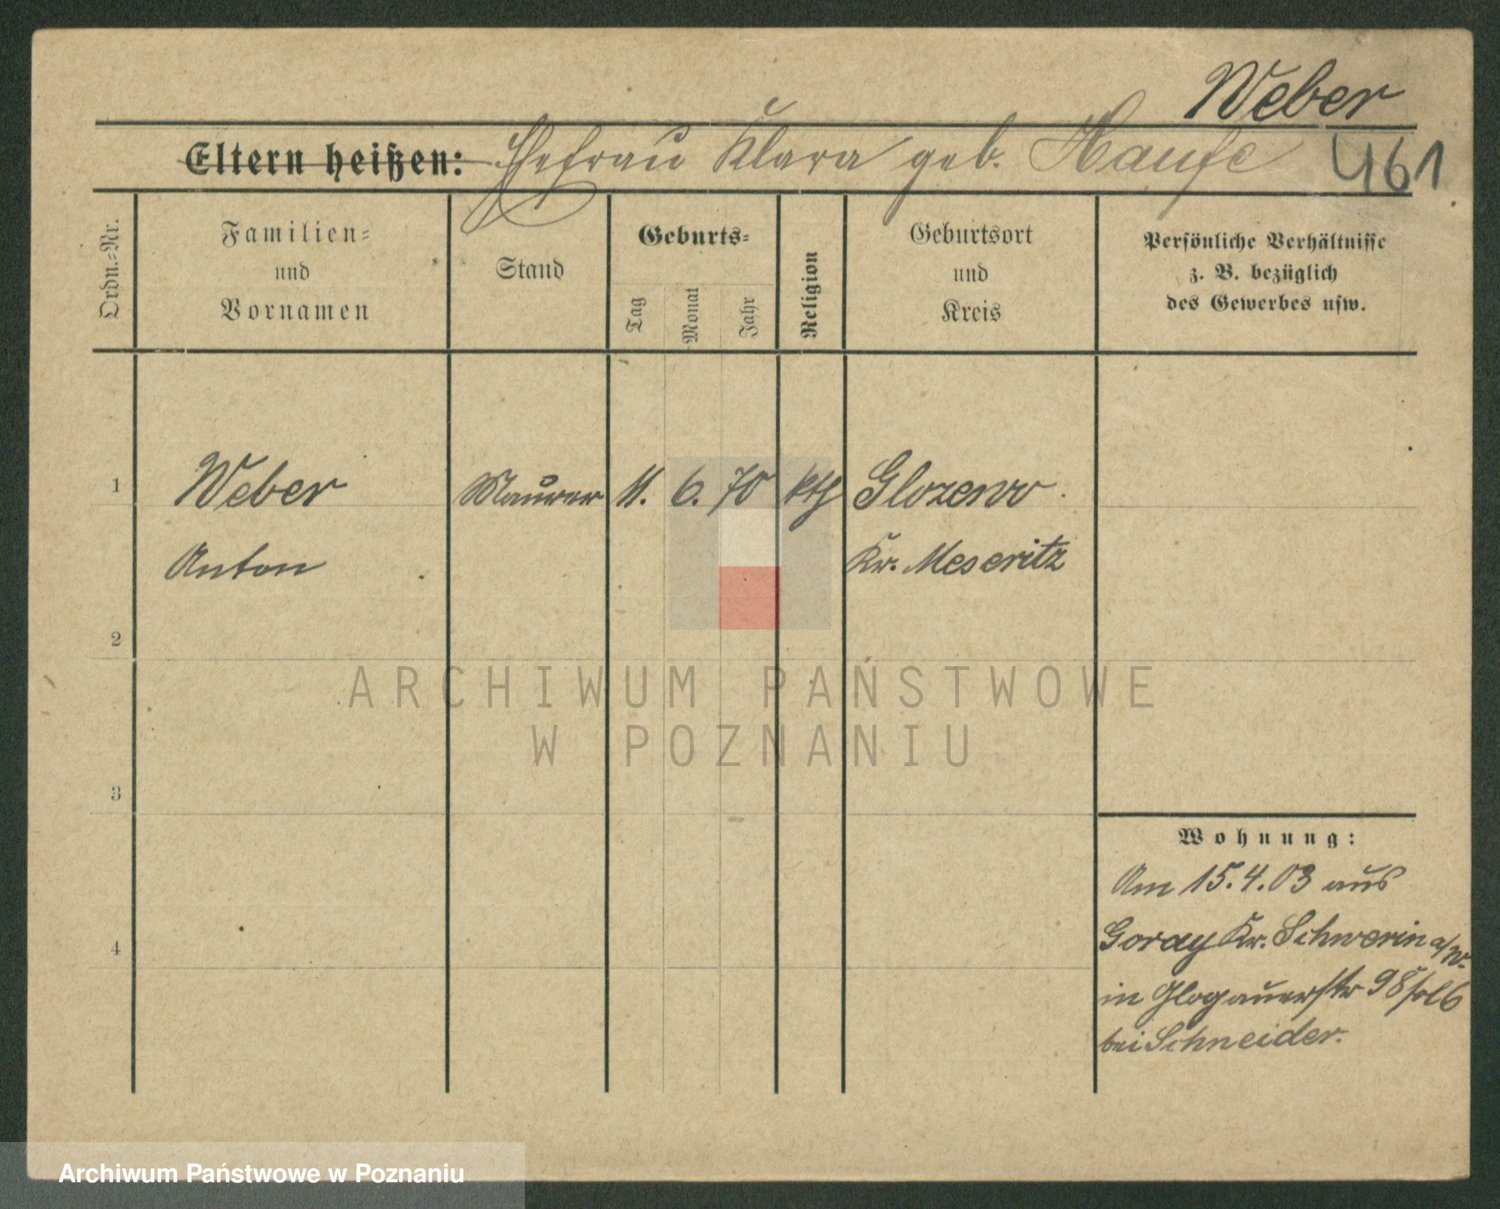 Weber
Eltern heißen: Ehefrau Klara geb. Haufe
461
Ordn.-Nr.
Familien-
und
Vornamen
Stand
Geburts-
Tag
Monat
Jahr
Religion
Geburtsort
und
Kreis
Persönliche Verhältnisse
z. B. bezüglich
des Gewerbes usw.
1 Weber Maurer 11. 6. 70 kth Glozewo
Anton Kr. Meseritz
2
ARCHIWUM PAŃSTWOWE
W POZNANIU
3
Wohnung:
Am 15.4.03 aus
4 Goray Kr. Schwerin a/W.
in Glogauerstr 98
bei Schneider.
Archiwum Państwowe w Poznaniu